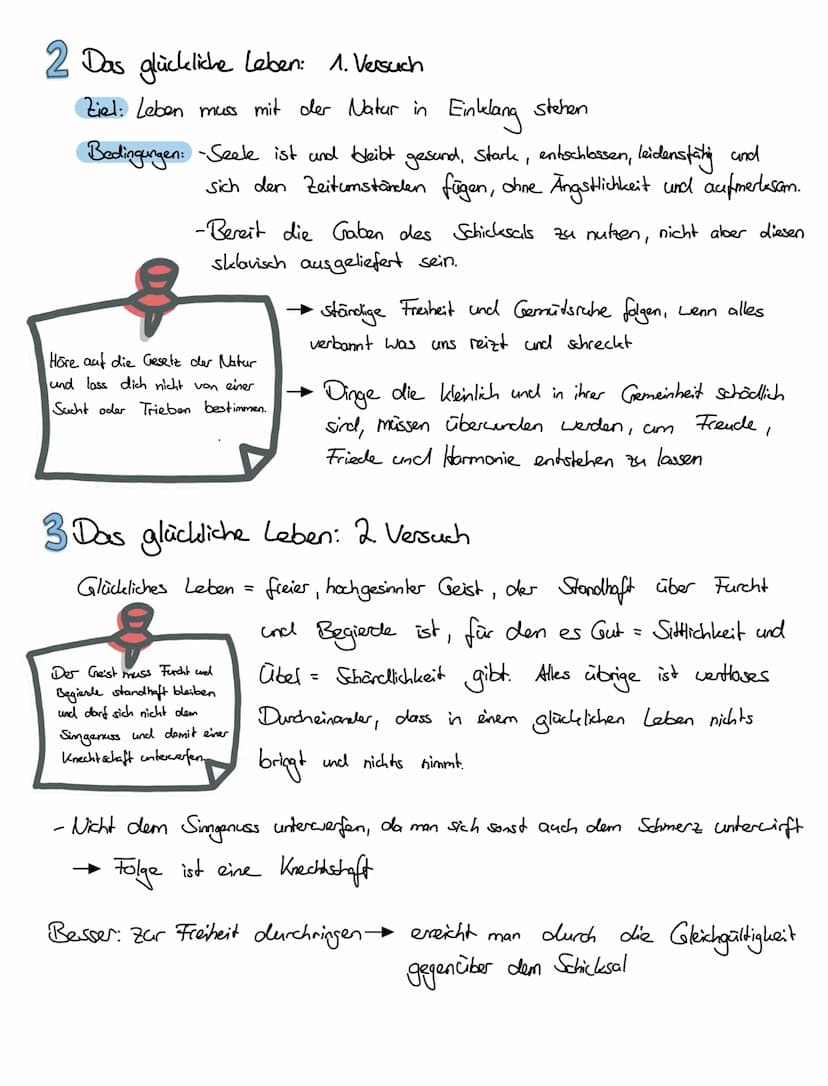 2 Das glückliche Leben: 1. Versuch
Ziel: Leben muss mit der Natur in Einklang stehen
Bedingungen: - Seele ist und bleibt gesund, stark, entschlossen, leidensfähig und
sich den Zeitumständen fügen, ohne Ängstlichkeit und aufmerksam.
- Bereit die Gaben des Schicksals zu nutzen, nicht aber diesen
sklavisch ausgeliefert sein.
→ Ständige Freiheit und Gemütsruhe folgen, wenn alles
verbannt was uns reizt und schreckt
→ Dinge die kleinlich und in ihrer Gemeinheit schädlich
sind, müssen überwunden werden, um Freude,
Friede und Harmonie entstehen zu lassen
Höre auf die Gesetz der Natur
und lass dich nicht von einer
Sucht oder Trieben bestimmen.
3 Das glückliche Leben: 2. Versuch
Glückliches Leben = freier, hochgesinnter Geist, der Standhaft über Furcht
und Begierde ist, für den es Gut = Sittlichkeit und
Übel = Schändlichkeit gibt. Alles übrige ist wertloses
Durcheinander, dass in einem glücklichen Leben nichts
bringt und nichts nimmt.
Der Geist muss Furcht und
Begierde standhaft bleiben
und darf sich nicht dem
Sinngenuss und damit einer
Knechtschaft unterwerfen.
- Nicht dem Sinngenuss unterwerfen, da man sich sonst auch dem Schmerz unterwirft
→ Folge ist eine Knechtschaft
Besser: zur Freiheit durchringen → erreicht man durch die Gleichgültigkeit
gegenüber dem Schicksal